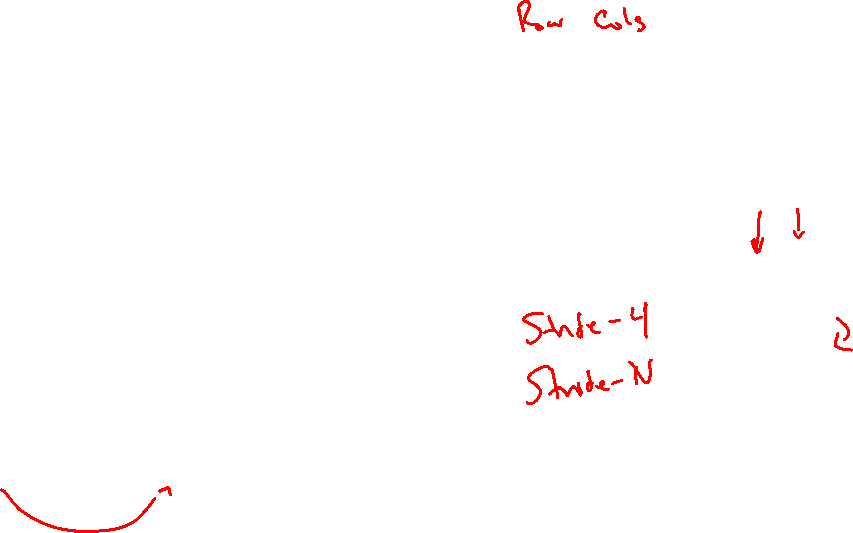 Row Cols
Stride-4
2
Stride-N